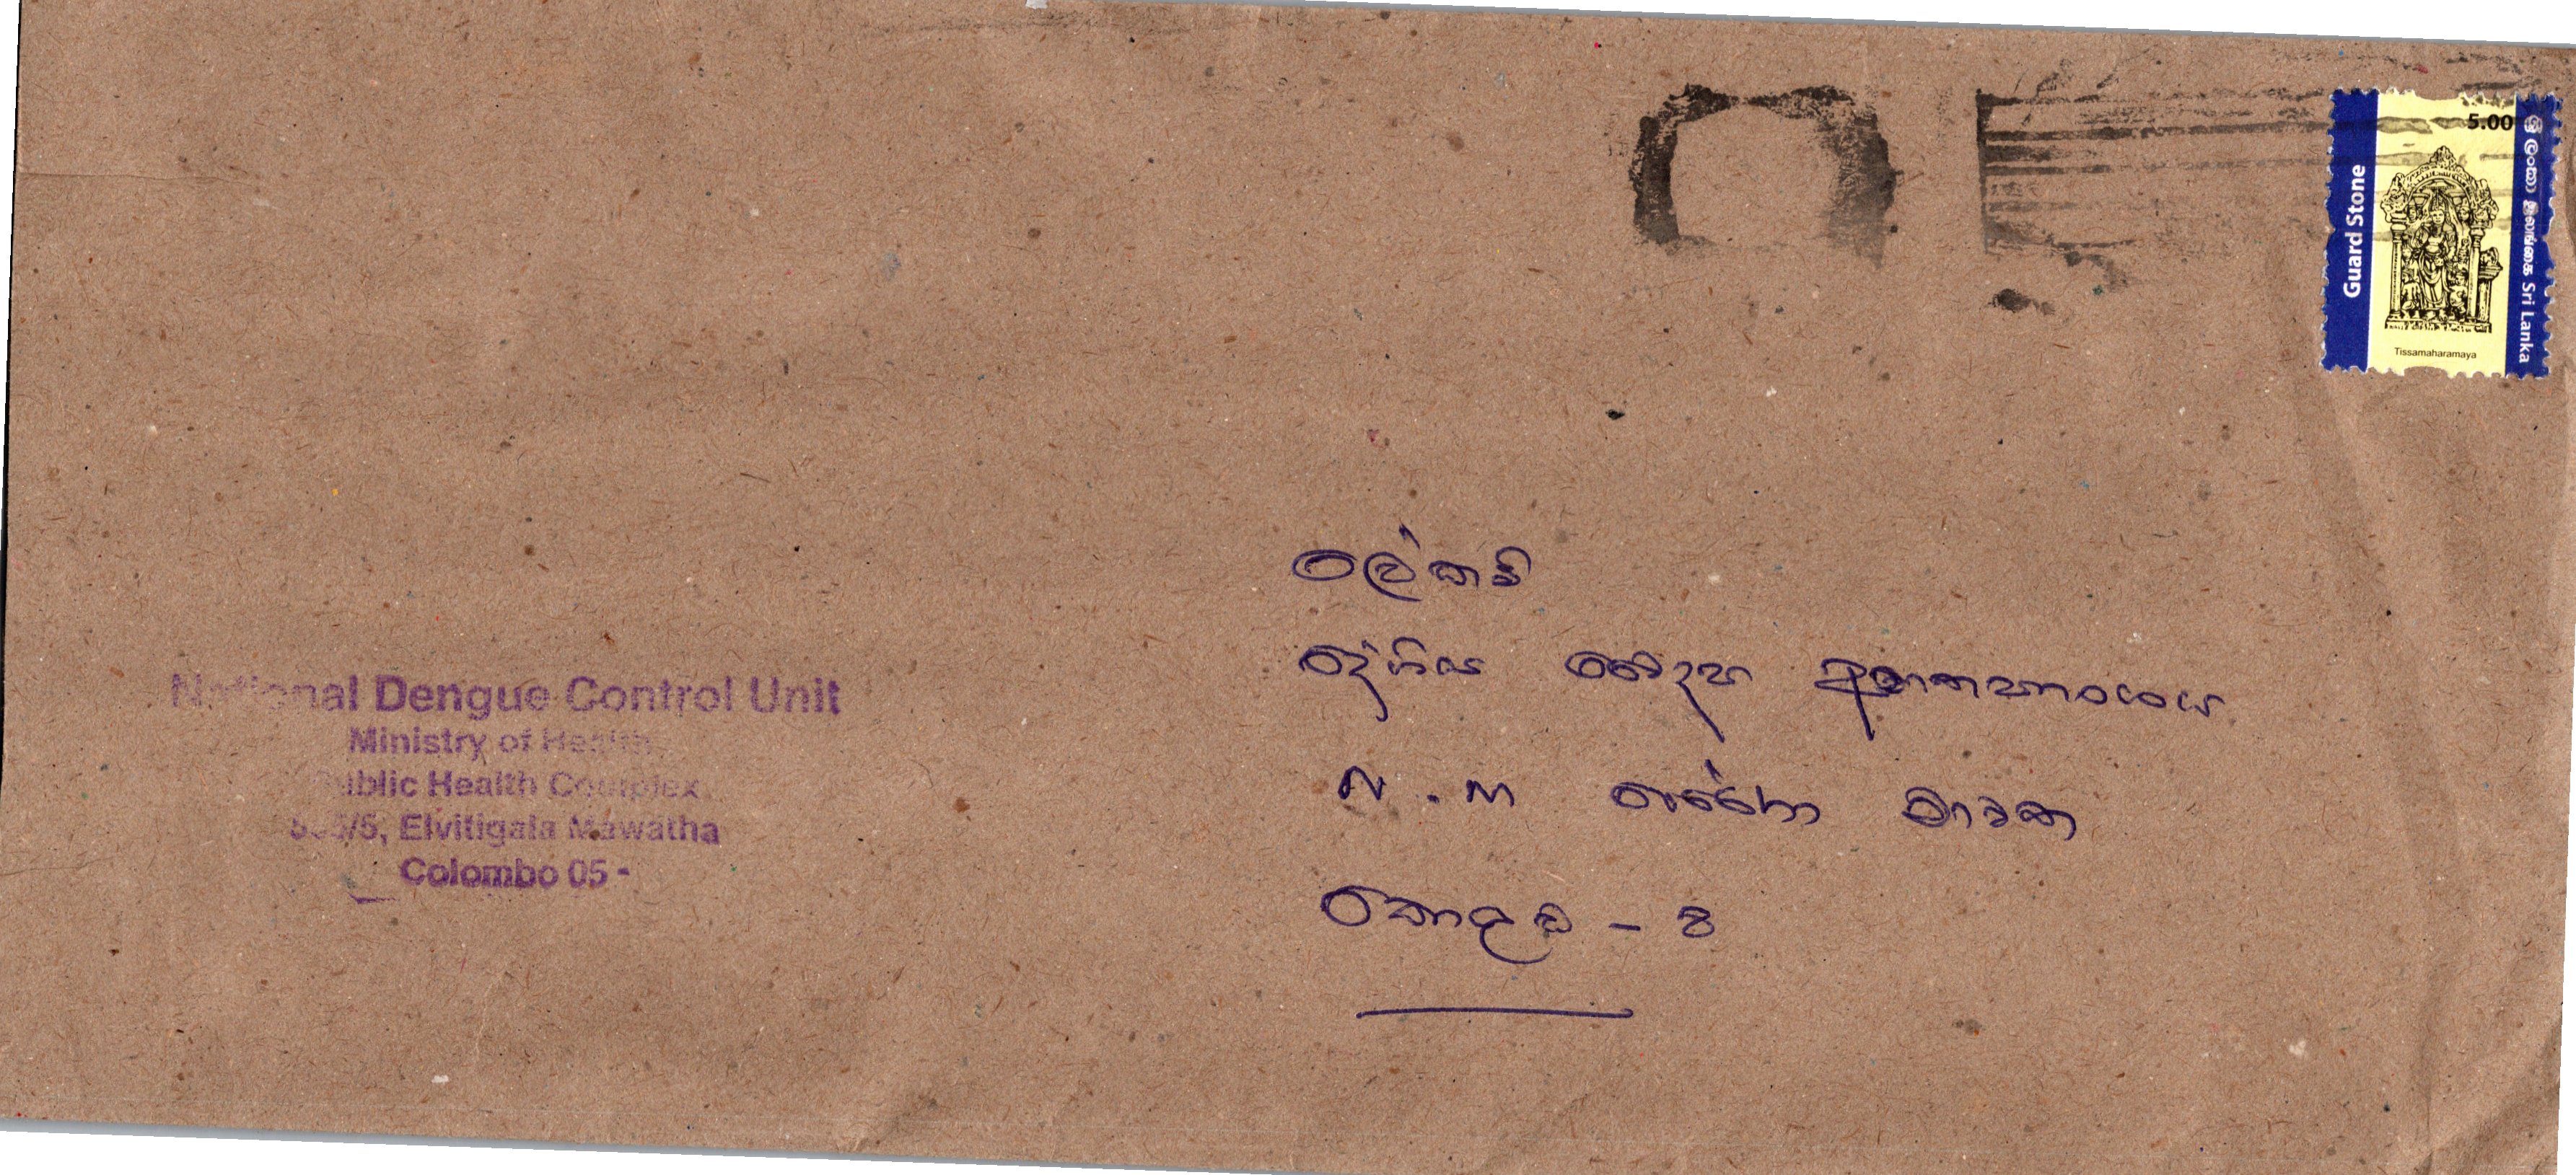 5.00
Guard Stone
ශ්‍රී ලංකා இலங்கை Sri Lanka
Tissamaharamaya
ලේකම්
දේශීය වෛද්‍ය
මාවත
කොළඹ - 8
National Dengue Control Unit
Ministry of Health
Public Health Complex
Elvitigala Mawatha
Colombo 05 -